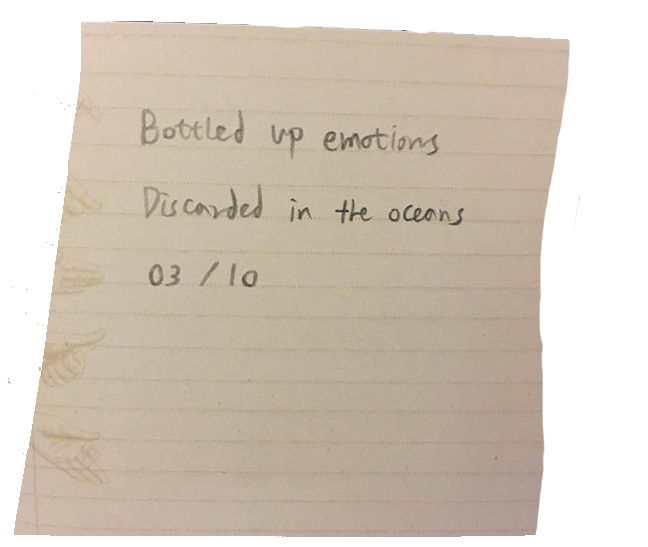 Bottled up emotions
Discarded in the oceans
03 / 10